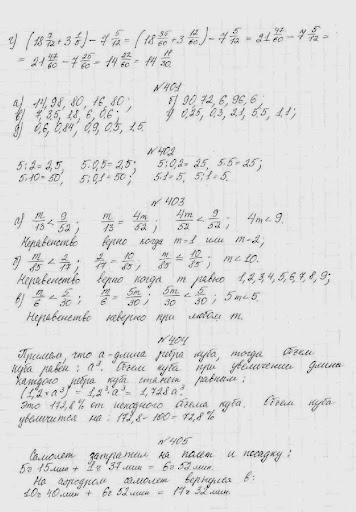 г) (18 7/12 + 3 1/5) - 7 5/12 = (18 35/60 + 3 12/60) - 7 5/12 = 21 47/60 - 7 5/12 =
= 21 47/60 - 7 25/60 = 14 22/60 = 14 11/30
№401
а) 14, 98, 80, 16, 80; б) 90, 72, 6, 96, 6;
в) 7, 2,5, 18, 6, 0,6; г) 0,25, 0,3, 2,1, 5,5, 1,1;
д) 0,6, 0,84, 0,9, 0,5, 1,5.
№402
5:2=2,5, 5·0,5=2,5; 5:0,2=25, 5·5=25;
5·10=50, 5:0,1=50; 5·1=5, 5:1=5.
№403
а) m/13 < 9/52; m/13 = 4m/52; 4m/52 < 9/52; 4m<9.
Неравенство верно когда m=1 или m=2,
б) m/85 < 2/17; 2/17 = 10/85; m/85 < 10/85; m<10.
Неравенство верно когда m равно 1,2,3,4,5,6,7,8,9;
в) m/6 < 5/30; m/6 = 5m/30; 5m/30 < 5/30; 5m<5.
Неравенство неверно при любом m.
№404
Примем, что a-длина ребра куба, тогда объем
куба равен: a³. Объем куба при увеличении длины
каждого ребра куба станет равным:
(1,2×a³) = 1,2³·a³ = 1,728a³
Это 172,8% от исходного объема куба. Объем куба
увеличится на: 172,8-100=72,8%
№405
Самолет затратил на полет и посадку:
5ч 15мин + 1ч 37мин = 6ч 52мин.
На аэродром самолет вернулся в:
10ч 40мин + 6ч 52мин = 17ч 32мин.